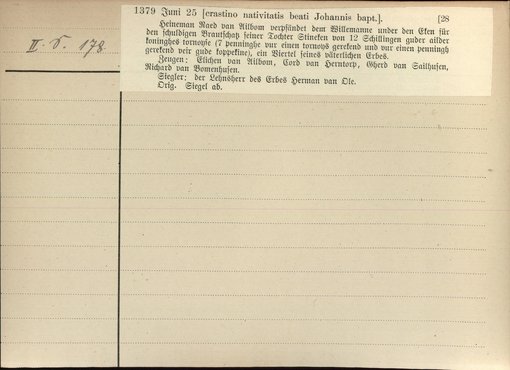 1379 Juni 25 [crastino nativitatis beati Johannis bapt.]. [28
Heineman Raed van Ailbom verpfändet dem Willemanne under den Eken für
den schuldigen Brautschatz seiner Tochter Stineken von 12 Schillingen guder ailder
koninghes tornoyse (7 penninghe vur einen torneys gerekend und vur einen penningh
gerekend veir gude koppekine), ein Viertel seines väterlichen Erbes.
Zeugen: Elichen van Ailbom, Cord van Herntorp, Gherd van Sailhusen,
Richard van Bomenhusen.
Siegler: der Lehnsherr des Erbes Herman van Ole.
Orig. Siegel ab.
II. 178